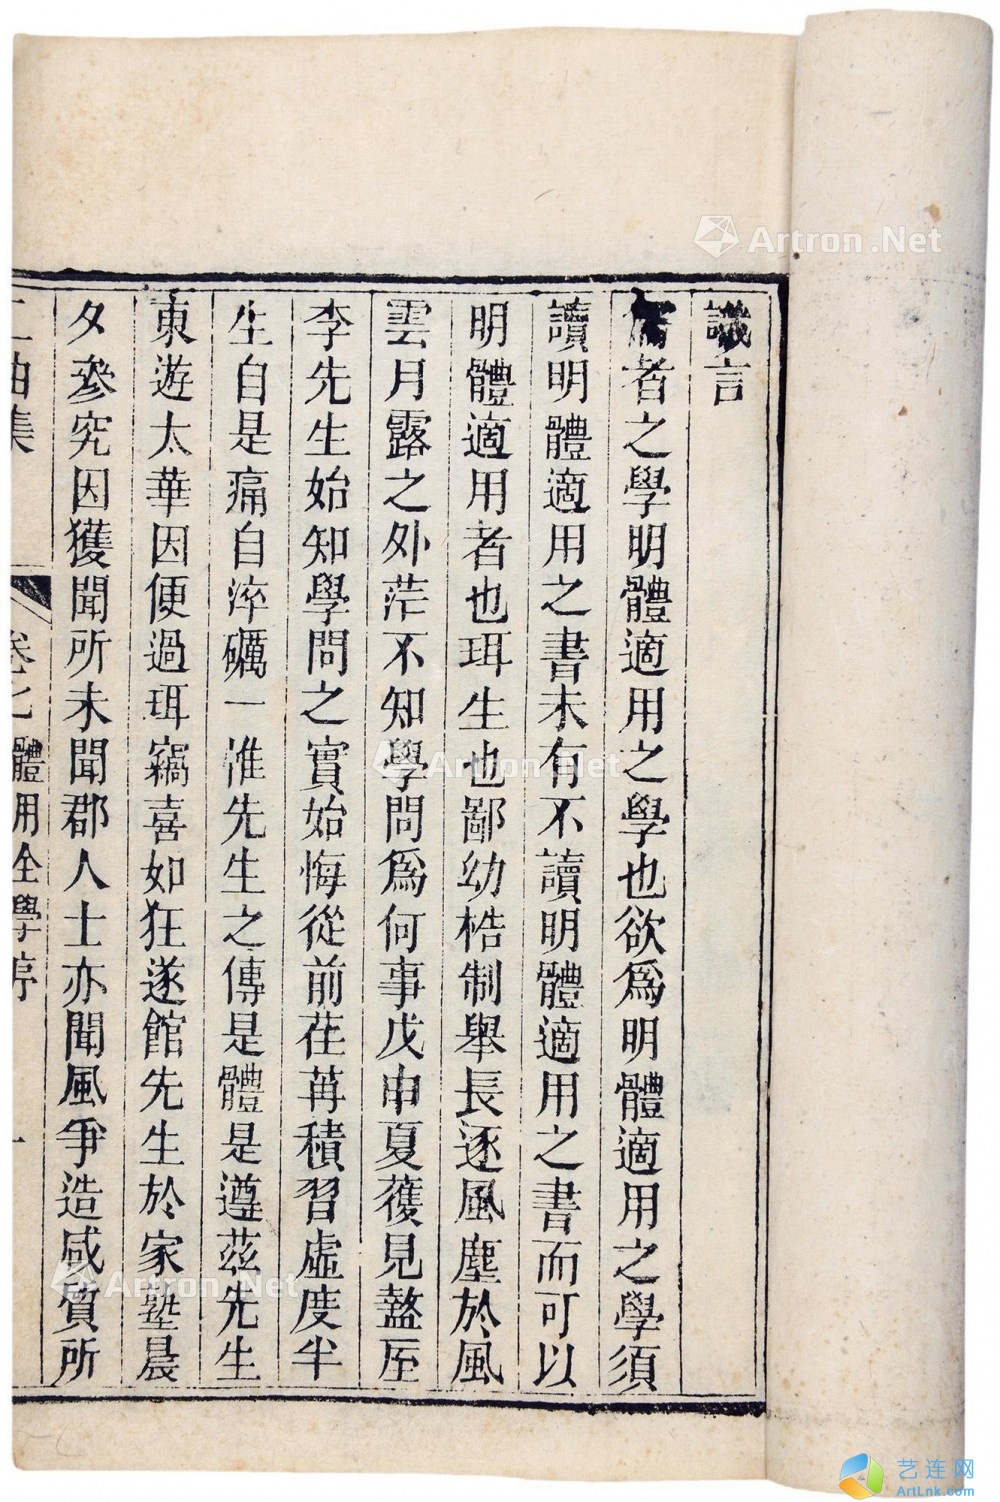 識言
儒者之學明體適用之學也欲爲明體適用之學須
讀明體適用之書未有不讀明體適用之書而可以
明體適用者也珥生也鄙幼梏制舉長逐風塵於風
雲月露之外茫不知學問爲何事戊申夏獲見盩厔
李先生始知學問之實始悔從前荏苒積習虛度半
生自是痛自淬礪一惟先生之傳是體是遵兹先生
東遊太華因便過珥竊喜如狂遂館先生於家塾晨
夕參究因獲聞所未聞郡人士亦聞風爭造咸質所
二曲集 卷七 體用全學序 一
Artron.Net
Artron.Net
Artron.Net
艺连网
ArtLnk.com